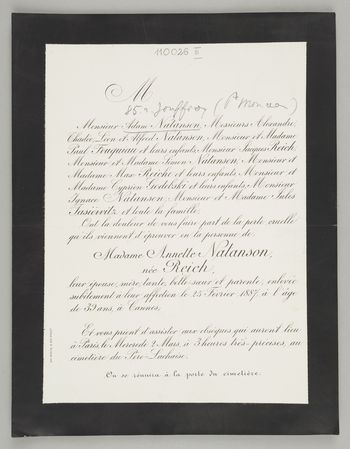 110026 II
M
85 r. Jouffroy (Pc Monceau)
Monsieur Adam Natanson, Messieurs Alexandre,
Charles, Léon et Alfred Natanson, Monsieur et Madame
Paul Fouquiau et leurs enfants, Monsieur Jacques Reich,
Monsieur et Madame Simon Natanson, Monsieur et
Madame Max Reich et leurs enfants, Monsieur et
Madame Cyprien Godebski et leurs enfants, Monsieur
Ignace Natanson, Monsieur et Madame Jules
Tasiewitz et toute la famille,
Ont la douleur de vous faire part de la perte cruelle
qu'ils viennent d'éprouver en la personne de
Madame Annette Natanson,
née Reich,
leur épouse, mère, tante, belle-sœur et parente, enlevée
subitement à leur affection le 25 Février 1887, à l'âge
de 39 ans, à Cannes,
Et vous prient d'assister aux obsèques qui auront lieu
à Paris, le Mercredi 2 Mars, à 3 heures très-précises, au
cimetière du Père-Lachaise.
On se réunira à la porte du cimetière.